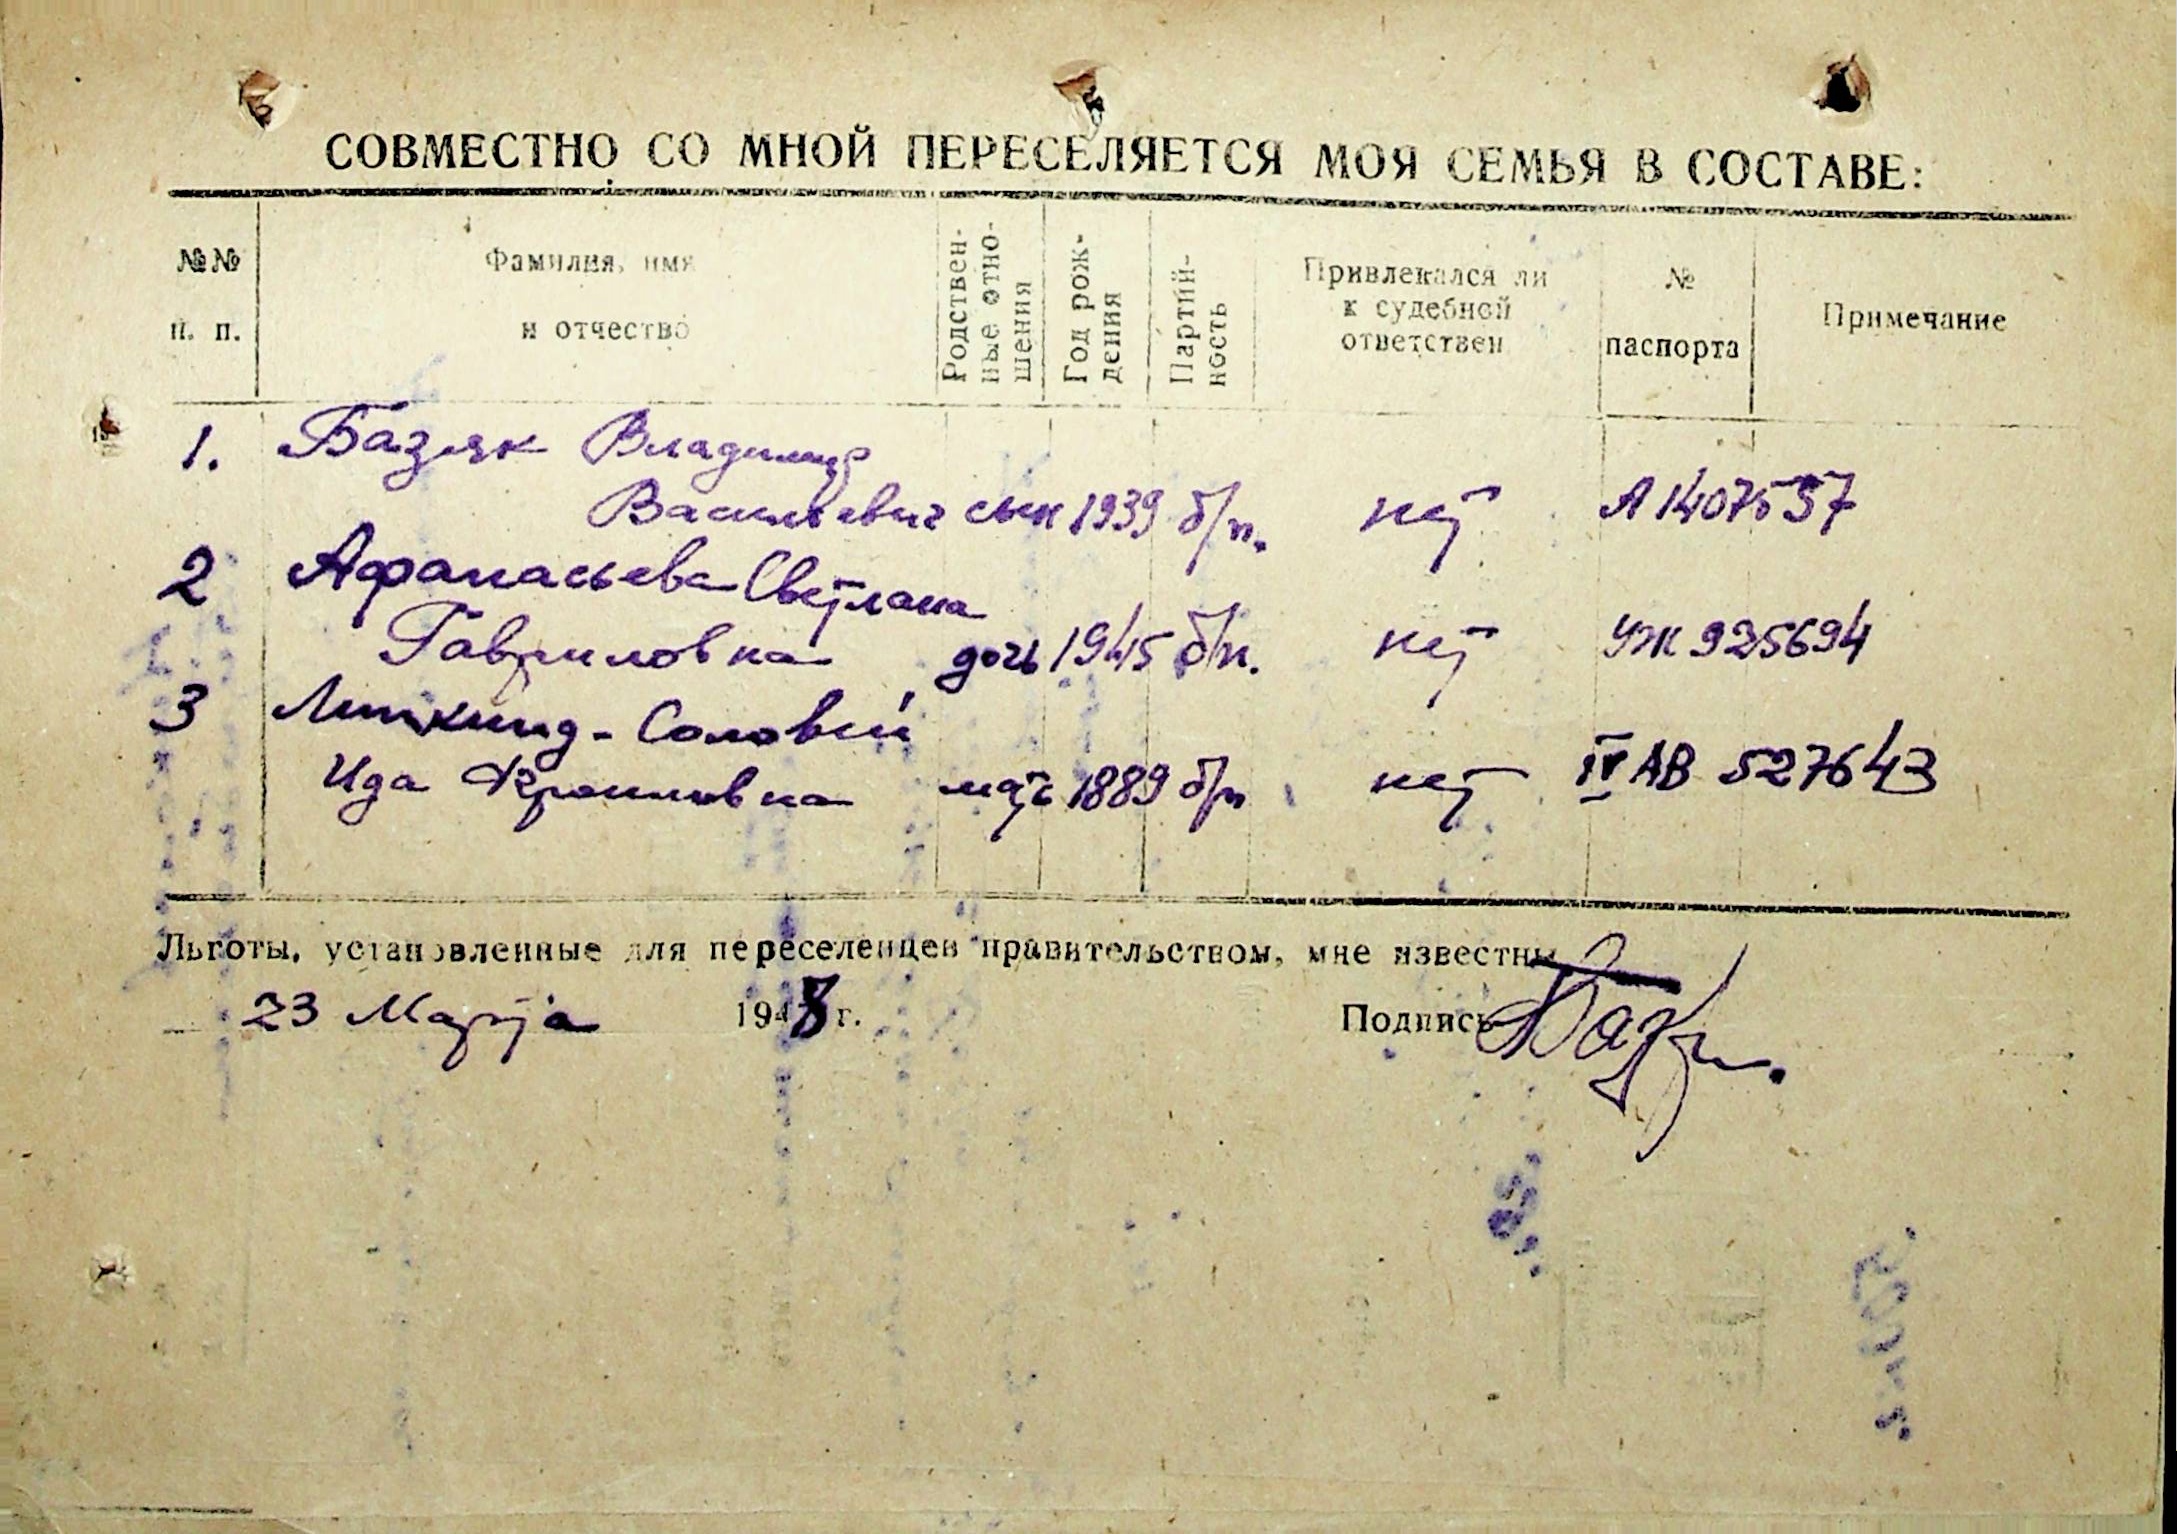 СОВМЕСТНО СО МНОЙ ПЕРЕСЕЛЯЕТСЯ МОЯ СЕМЬЯ В СОСТАВЕ:
№№ п. п.
Фамилия, имя и отчество
Родствен-
ные отно-
шения
Год рож-
дения
Партий-
ность
Привлекался ли
к судебной
ответствен
№
паспорта
Примечание
1. Базяк Владимир
Васильевич сын 1939 б/п. нет А 1407537
2 Афанасьева Светлана
Гавриловна дочь 1945 б/п. нет УЖ 925694
3 Соловей
Ида мать 1889 б/п нет IV АВ 527643
Льготы, установленные для переселенцев правительством, мне известны
23 Марта 1948 г. Подпись